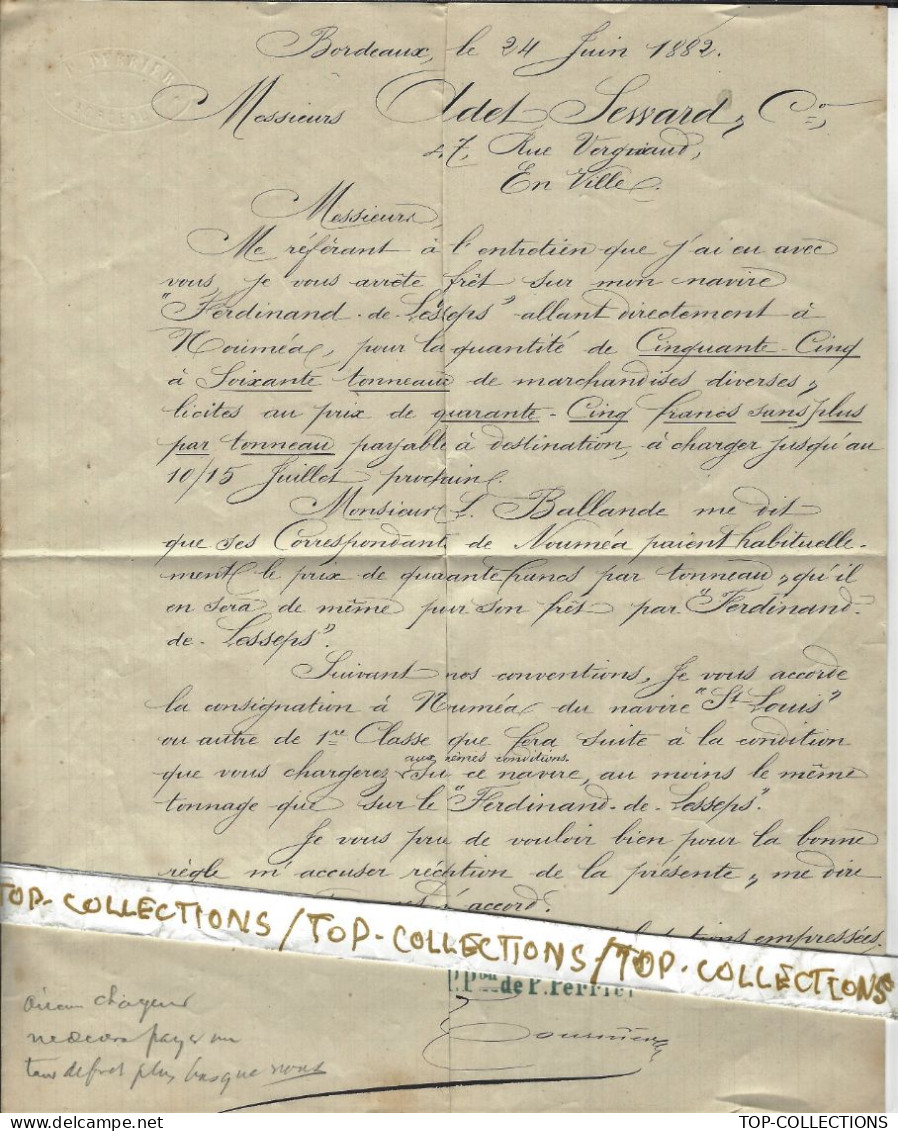 Bordeaux, le 24 Juin 1882.
Messieurs Adet Seward & Cie,
47, Rue Vergniaud,
En Ville.
Messieurs,
Me référant à l'entretien que j'ai eu avec
vous, je vous arrête frêt sur mon navire
"Ferdinand-de-Lesseps" allant directement à
Nouméa, pour la quantité de Cinquante-Cinq
à Soixante tonneaux de marchandises diverses,
licites au prix de quarante-Cinq francs sans plus
par tonneau payable à destination, à charger jusqu'au
10/15 Juillet prochain.
Monsieur L. Ballande me dit
que ses Correspondants de Nouméa paient habituelle-
ment le prix de quarante francs par tonneau, qu'il
en sera de même pour son frêt par "Ferdinand-
de-Lesseps".
Suivant nos conventions, Je vous accorde
la consignation à Nouméa du navire "St Louis"
ou autre de 1re Classe que fera suite à la condition
aux mêmes conditions
que vous chargerez sur ce navire, au moins le même
tonnage que sur le "Ferdinand-de-Lesseps".
Je vous prie de vouloir bien pour la bonne
règle m'accuser réception de la présente, me dire
d'accord.
empressées.
TOP-COLLECTIONS / TOP-COLLECTIONS / TOP-COLLECTIONS
P. Pon de P. Perrier
chargeur
ne devra payer un
taux de fret plus bas que nous
TOP-COLLECTIONS